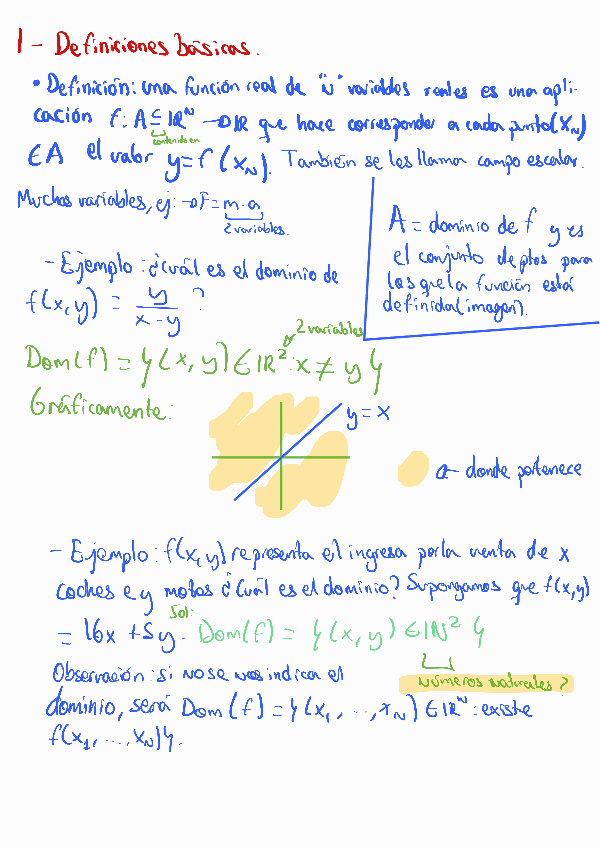 1 - Definiciones básicas.
• Definición: una función real de "N" variables reales es una apli-
cación f: A ⊆ IR^N → IR que hace corresponder a cada punto (x_N)
contenido en
∈ A el valor y = f(x_N). También se les llama campo escalar.
Muchas variables, ej: → F = m · a
2 variables.
A = dominio de f y es
el conjunto de ptos para
los que la función está
definida (imagen).
- Ejemplo: ¿cuál es el dominio de
f(x,y) = y/(x-y) ?
2 variables
Dom(f) = {(x, y) ∈ IR²: x ≠ y}
Gráficamente:
y = x
donde pertenece
- Ejemplo: f(x,y) representa el ingreso por la venta de x
coches e y motos ¿Cuál es el dominio? Supongamos que f(x,y)
Sol:
= 16x + 5y. Dom(f) = {(x, y) ∈ IN²}
números naturales?
Observación: si no se nos indica el
dominio, será Dom(f) = {(x₁, ..., x_N) ∈ IR^N: existe
f(x₁, ..., x_N)}.